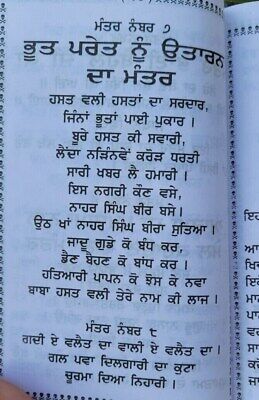 ਮੰਤਰ ਨੰਬਰ ੭
ਭੂਤ ਪਰੇਤ ਨੂੰ ਉਤਾਰਨ
ਦਾ ਮੰਤਰ
ਹਸਤ ਵਲੀ ਹਸਤਾਂ ਦਾ ਸਰਦਾਰ,
ਜਿੰਨਾਂ ਭੂਤਾਂ ਪਾਈ ਪੁਕਾਰ ।
ਬੂਰੇ ਹਸਤ ਕੀ ਸਵਾਰੀ,
ਲੈਂਦਾ ਨੜਿੰਨਵੇਂ ਕਰੋੜ ਧਰਤੀ
ਸਾਰੀ ਖਬਰ ਲੈ ਹਮਾਰੀ ।
ਇਸ ਨਗਰੀ ਕੌਣ ਵਸੇ,
ਨਾਹਰ ਸਿੰਘ ਬੀਰ ਬਸੇ ।
ਉਠ ਖਾਂ ਨਾਹਰ ਸਿੰਘ ਬੀਰਾ ਸੁਤਿਆ ।
ਜਾਦੂ ਗੁਡੇ ਕੋ ਬੰਧ ਕਰ,
ਡੈਣ ਬੇਹਣ ਕੋ ਬੰਧ ਕਰ ।
ਹਤਿਆਰੀ ਪਾਪਨ ਕੋ ਝੋਸ ਕੋ ਨਵਾ
ਬਾਬਾ ਹਸਤ ਵਲੀ ਤੇਰੇ ਨਾਮ ਕੀ ਲਾਜ ।
ਮੰਤਰ ਨੰਬਰ ੮
ਗਦੀ ਏ ਵਲੈਤ ਦਾ ਵਾਲੀ ਏ ਵਲੈਤ ਦਾ ।
ਗਲ ਪਵਾ ਦਿਲਗਾਰੀ ਦਾ ਕੁਣਾ
ਚੂਰਮਾ ਦਿਆ ਨਿਹਾਰੀ ।